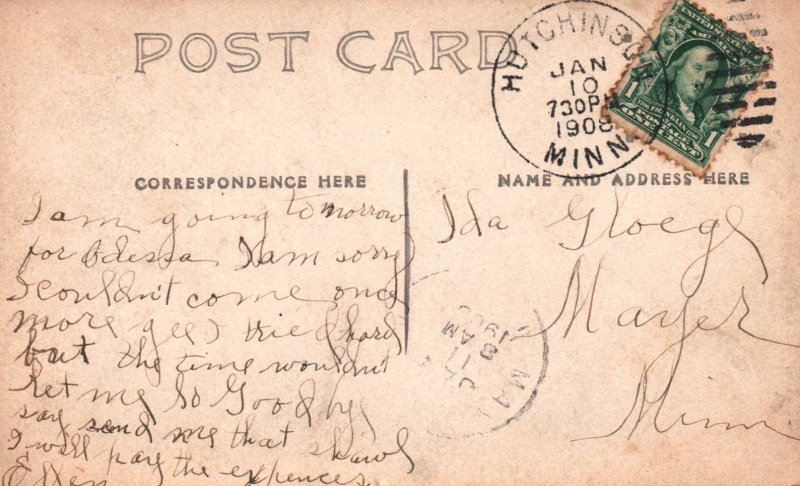 POST CARD
HUTCHINSON
JAN
10
730PM
1908
MINN.
UNITED STATES OF AMERICA
1 FRANKLIN 1
POSTAGE
ONE CENT
CORRESPONDENCE HERE
NAME AND ADDRESS HERE
I am going tomorrow
for Odessa I am sorry
I couldn't come once
more gee I tried hard
but the time wouldn't
let me So Good by
say send me that shawl
I will pay the expences.
Ellen
Ida Gloege
Mayer
Minn
MAY
JA
11
8 AM